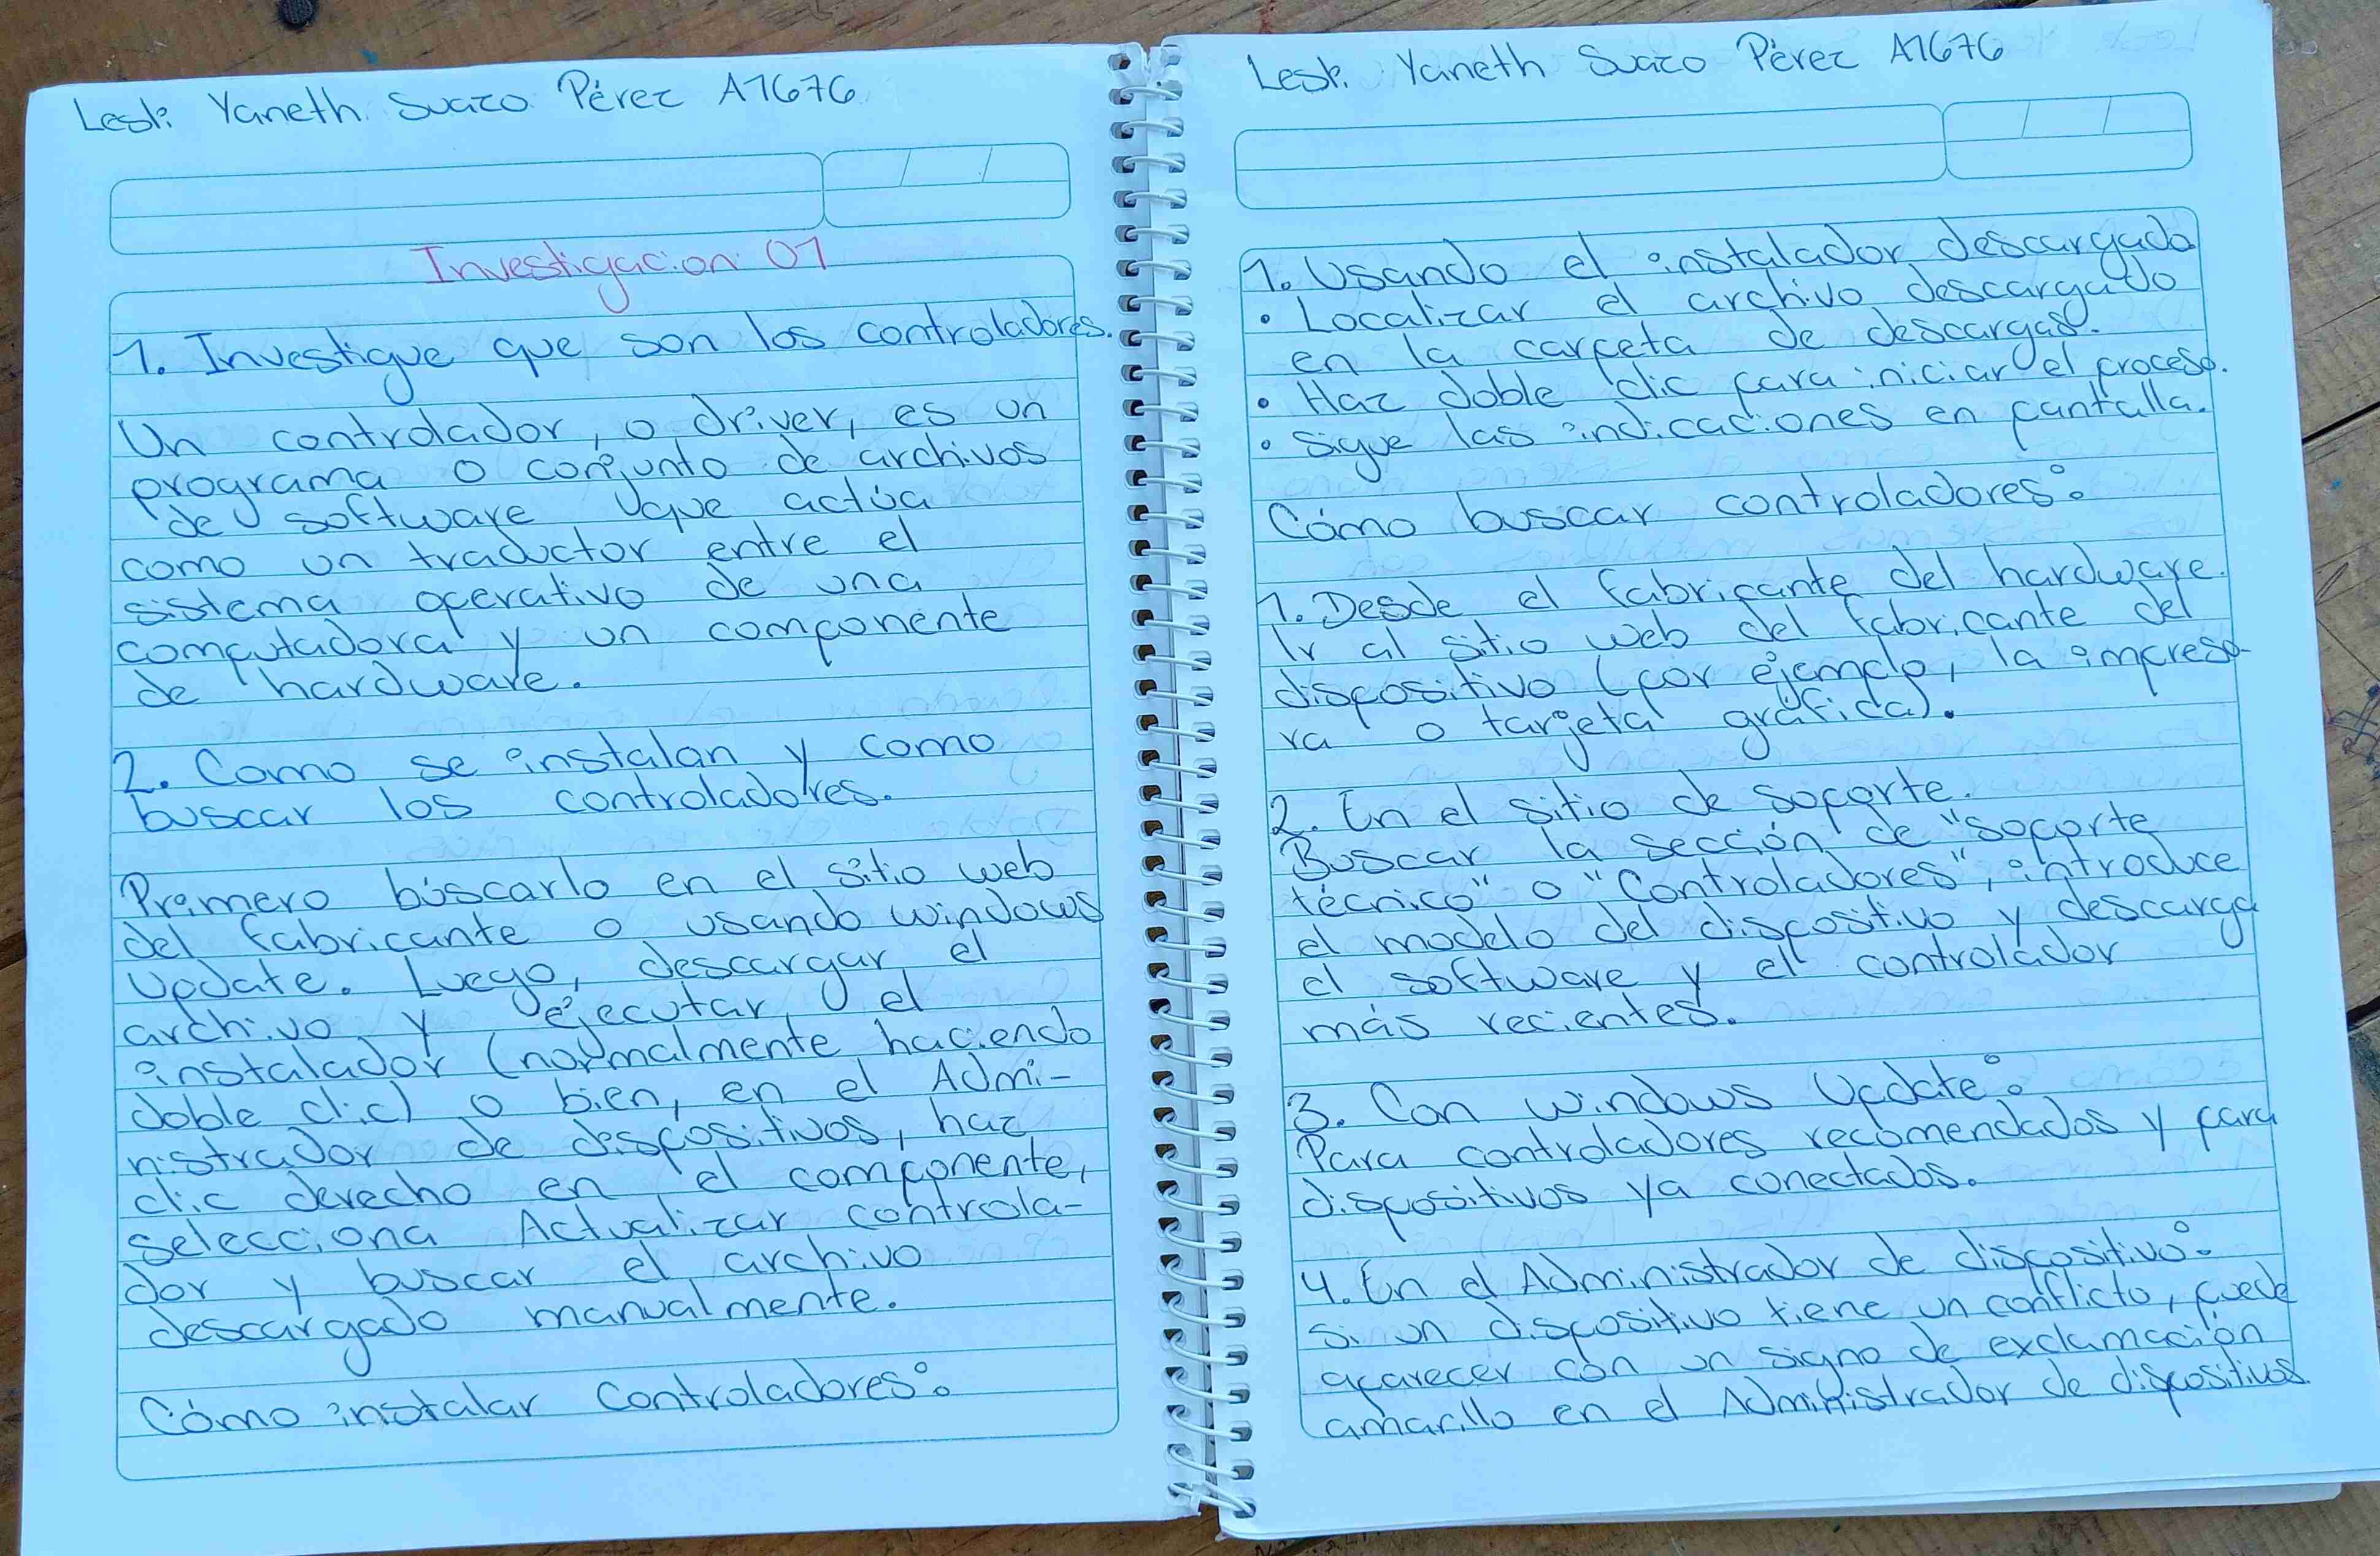 Lesli Yaneth Suazo Pérez A1676
Investigacion 01
1. Investigue que son los controladores.
Un controlador, o driver, es un
programa o conjunto de archivos
de software que actúa
como un traductor entre el
sistema operativo de una
computadora y un componente
de hardware.
2. Como se instalan y como
buscar los controladores.
Primero búscarlo en el sitio web
del fabricante o usando windows
Update. Luego, descargar el
archivo y ejecutar el
instalador (normalmente haciendo
doble clic) o bien, en el Admi-
nistrador de dispositivos, haz
clic derecho en el componente,
selecciona Actualizar controla-
dor y buscar el archivo
descargado manualmente.
Cómo instalar Controladores:
Lesli Yaneth Suazo Pérez A1676
1. Usando el instalador descargado
• Localizar el archivo descargado
en la carpeta de descargas.
• Haz doble clic para iniciar el proceso.
• Sigue las indicaciones en pantalla.
Cómo buscar controladores:
1. Desde el fabricante del hardware.
Ir al sitio web del fabricante del
dispositivo (por ejemplo, la impreso-
ra o tarjeta gráfica).
2. En el sitio de soporte.
Buscar la sección de "soporte
técnico" o "Controladores", introduce
el modelo del dispositivo y descarga
el software y el controlador
más recientes.
3. Con Windows Update:
Para controladores recomendados y para
dispositivos ya conectados.
4. En el Administrador de dispositivo:
Si un dispositivo tiene un conflicto, puede
aparecer con un signo de exclamación
amarillo en el Administrador de dispositivos.